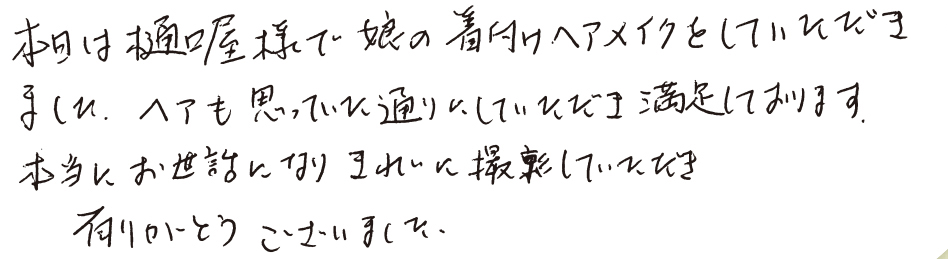 本日は樋口屋様で娘の着付けヘアメイクをしていただき
ました. ヘアも思っていた通りにしていただき満足しております.
本当にお世話になりきれいに撮影していただき
有りがとうございました.